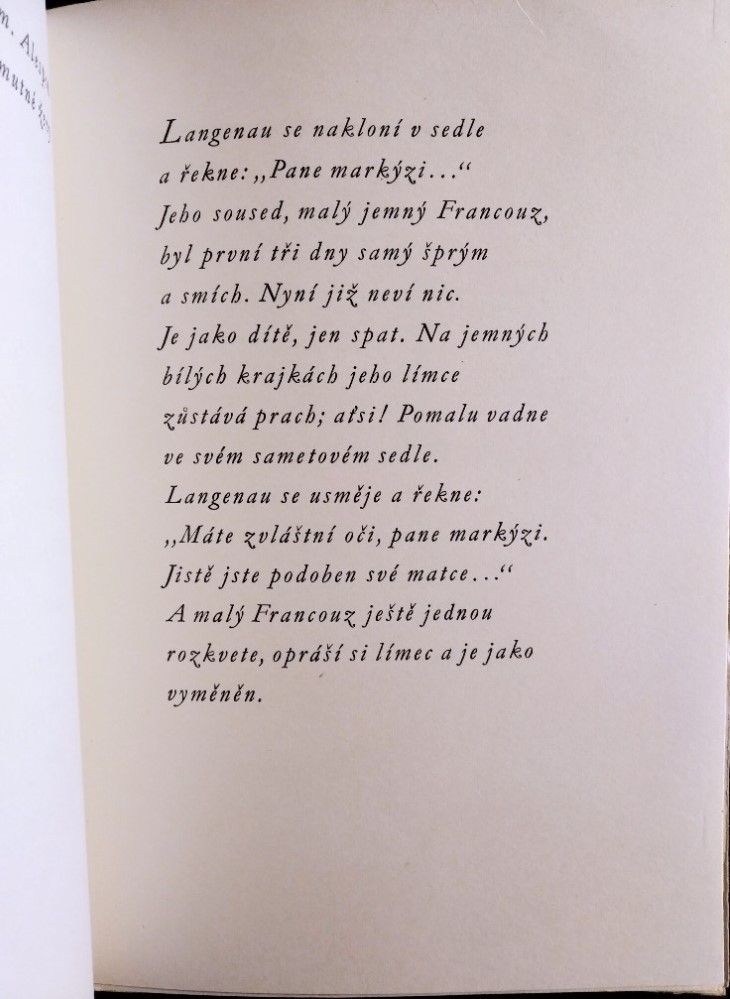 m. Alespo
mutné
Langenau se nakloní v sedle
a řekne: „Pane markýzi...“
Jeho soused, malý jemný Francouz,
byl první tři dny samý šprým
a smích. Nyní již neví nic.
Je jako dítě, jen spat. Na jemných
bílých krajkách jeho límce
zůstává prach; aťsi! Pomalu vadne
ve svém sametovém sedle.
Langenau se usměje a řekne:
„Máte zvláštní oči, pane markýzi.
Jistě jste podoben své matce...“
A malý Francouz ještě jednou
rozkvete, opráší si límec a je jako
vyměněn.